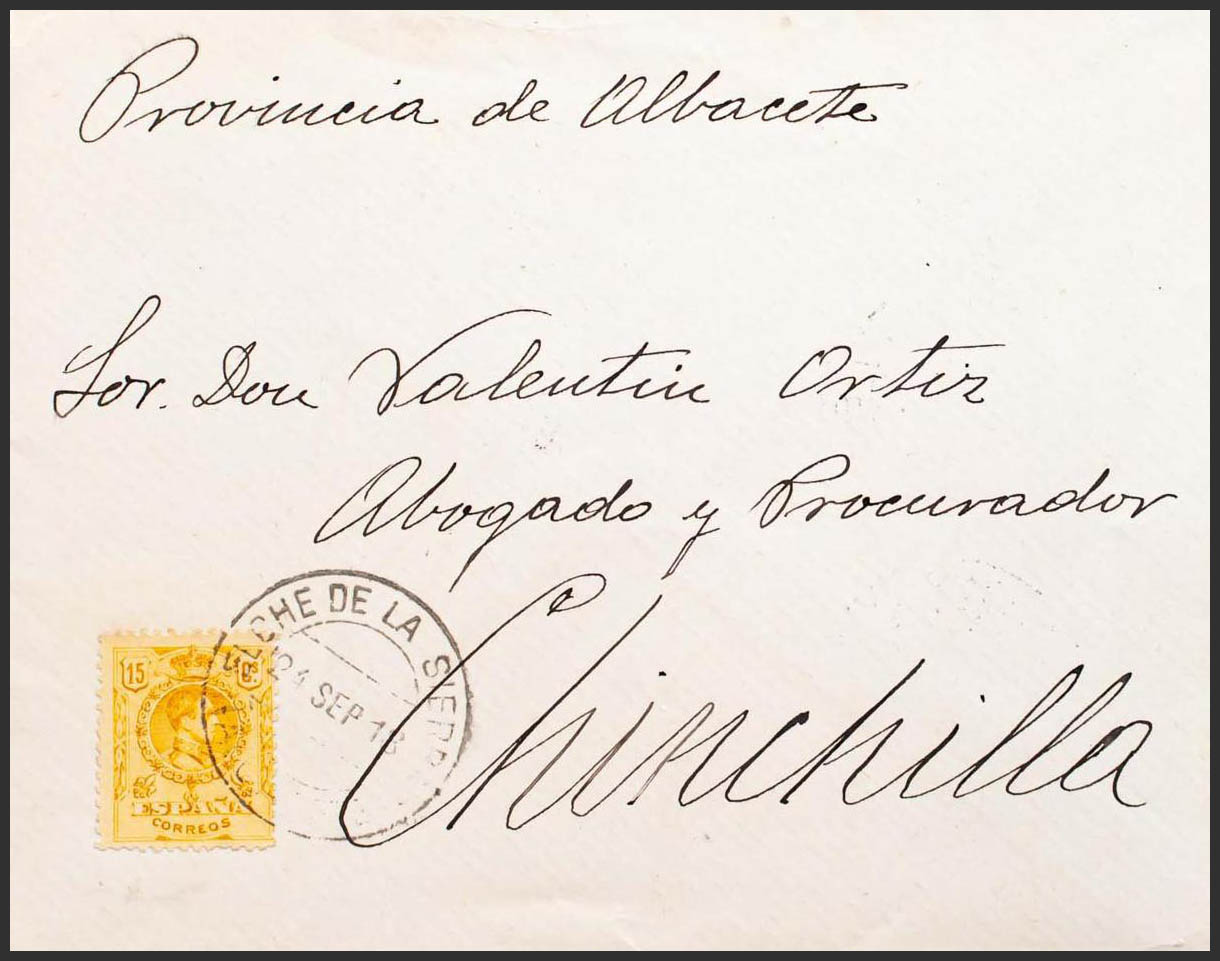 Provincia de Albacete
Sor. Don Valentin Ortiz
Abogado y Procurador
Chinchilla
ELCHE DE LA SIERR
24 SEP 18
15 Cs.
ESPAÑA
CORREOS